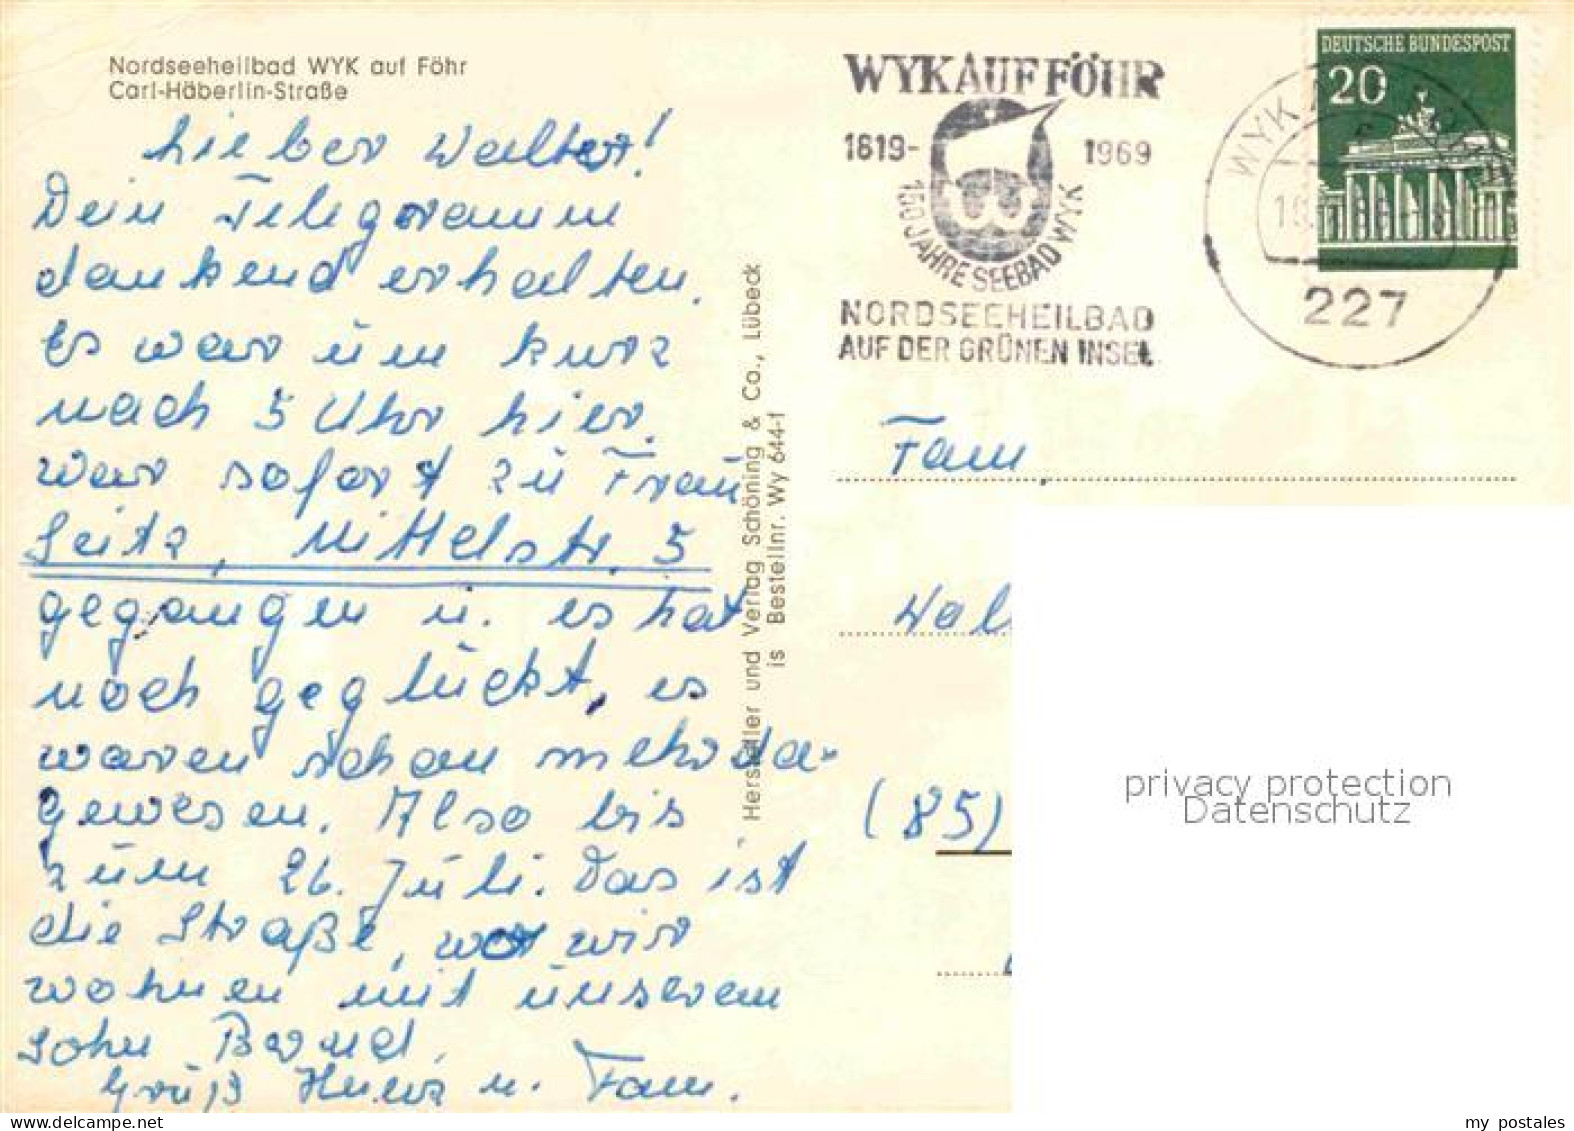 Nordseeheilbad WYK auf Föhr
Carl-Häberlin-Straße
Lieber Walter!
Dein Telegramm
dankend erhalten.
Es war um kurz
nach 5 Uhr hier.
War sofort zu Frau
Seitz, Mittelstr. 5
gegangen u. es hat
noch geglückt, es
waren schon mehr da-
gewesen. Also bis
zum 26. Juli. Das ist
die Straße, wo wir
wohnen mit unserem
Sohn Bernd.
Gruß u. Fam.
Hersteller und Verlag Schöning & Co., Lübeck
is Bestellnr. Wy 644-1
WYK AUF FÖHR
1819- 1969
150 JAHRE SEEBAD WYK
NORDSEEHEILBAD
AUF DER GRÜNEN INSEL
DEUTSCHE BUNDESPOST
20
WYK
227
Fam
Wal
(85)
privacy protection
Datenschutz
my postales